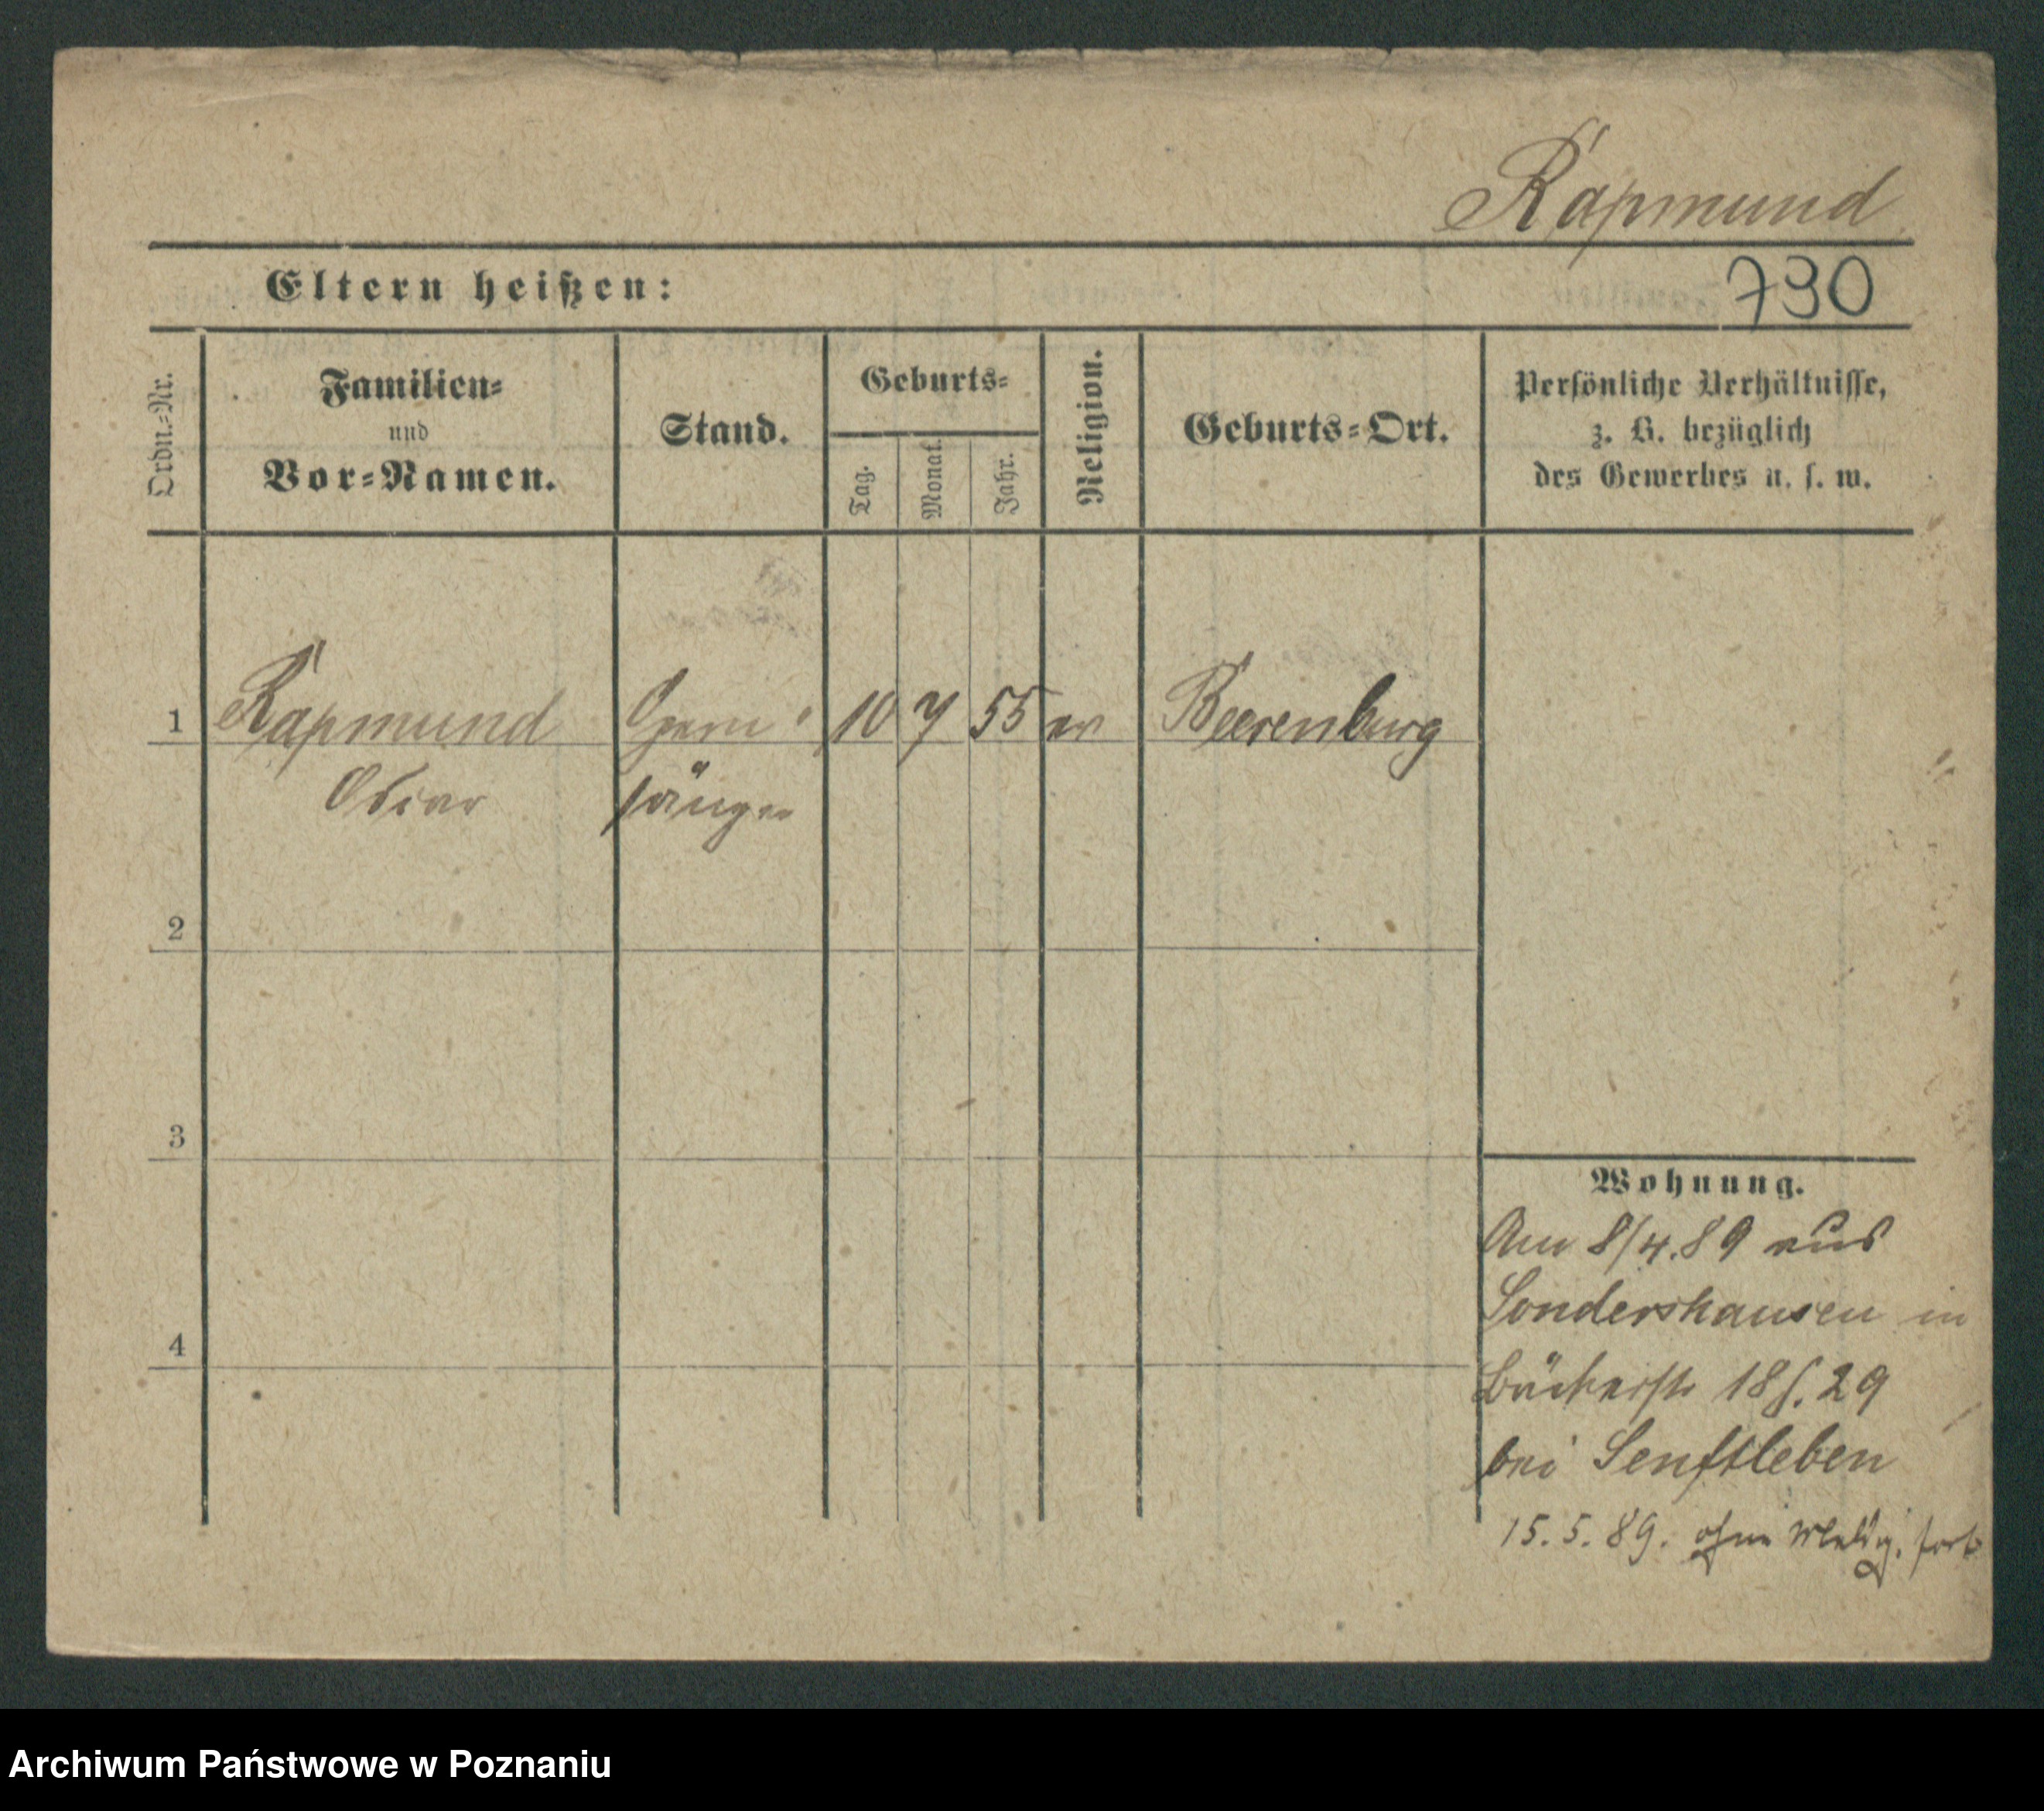 Rapmund
Eltern heißen:
730
Ordn.=Nr.
Familien=
und
Vor=Namen.
Stand.
Geburts=
Tag.
Monat.
Jahr.
Religion.
Geburts=Ort.
Persönliche Verhältnisse,
z. B. bezüglich
des Gewerbes u. s. w.
1 Rapmund Opern 10 7 55 ev Beerenburg
Oscar sänger
2
3
4
Wohnung.
Am 8/4.89 aus
Sondershausen in
Bäckerstr 18 f. 29
bei Senftleben
15.5.89. ohne Meldg. fort
Archiwum Państwowe w Poznaniu